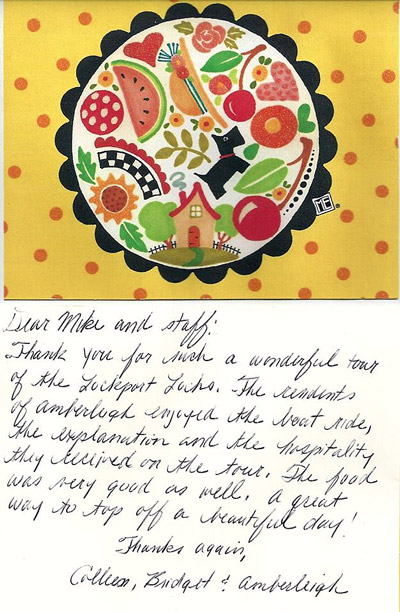 ME
Dear Mike and staff:
Thank you for such a wonderful tour
of the Lockport Locks. The residents
of Amberleigh enjoyed the boat ride,
the explanation and the hospitality
they recieved on the tour. The food
was very good as well. A great
way to top off a beautiful day!
Thanks again,
Colleen, Bridget & Amberleigh